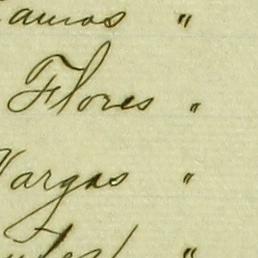 Ramos "
Flores "
Vargas "
"